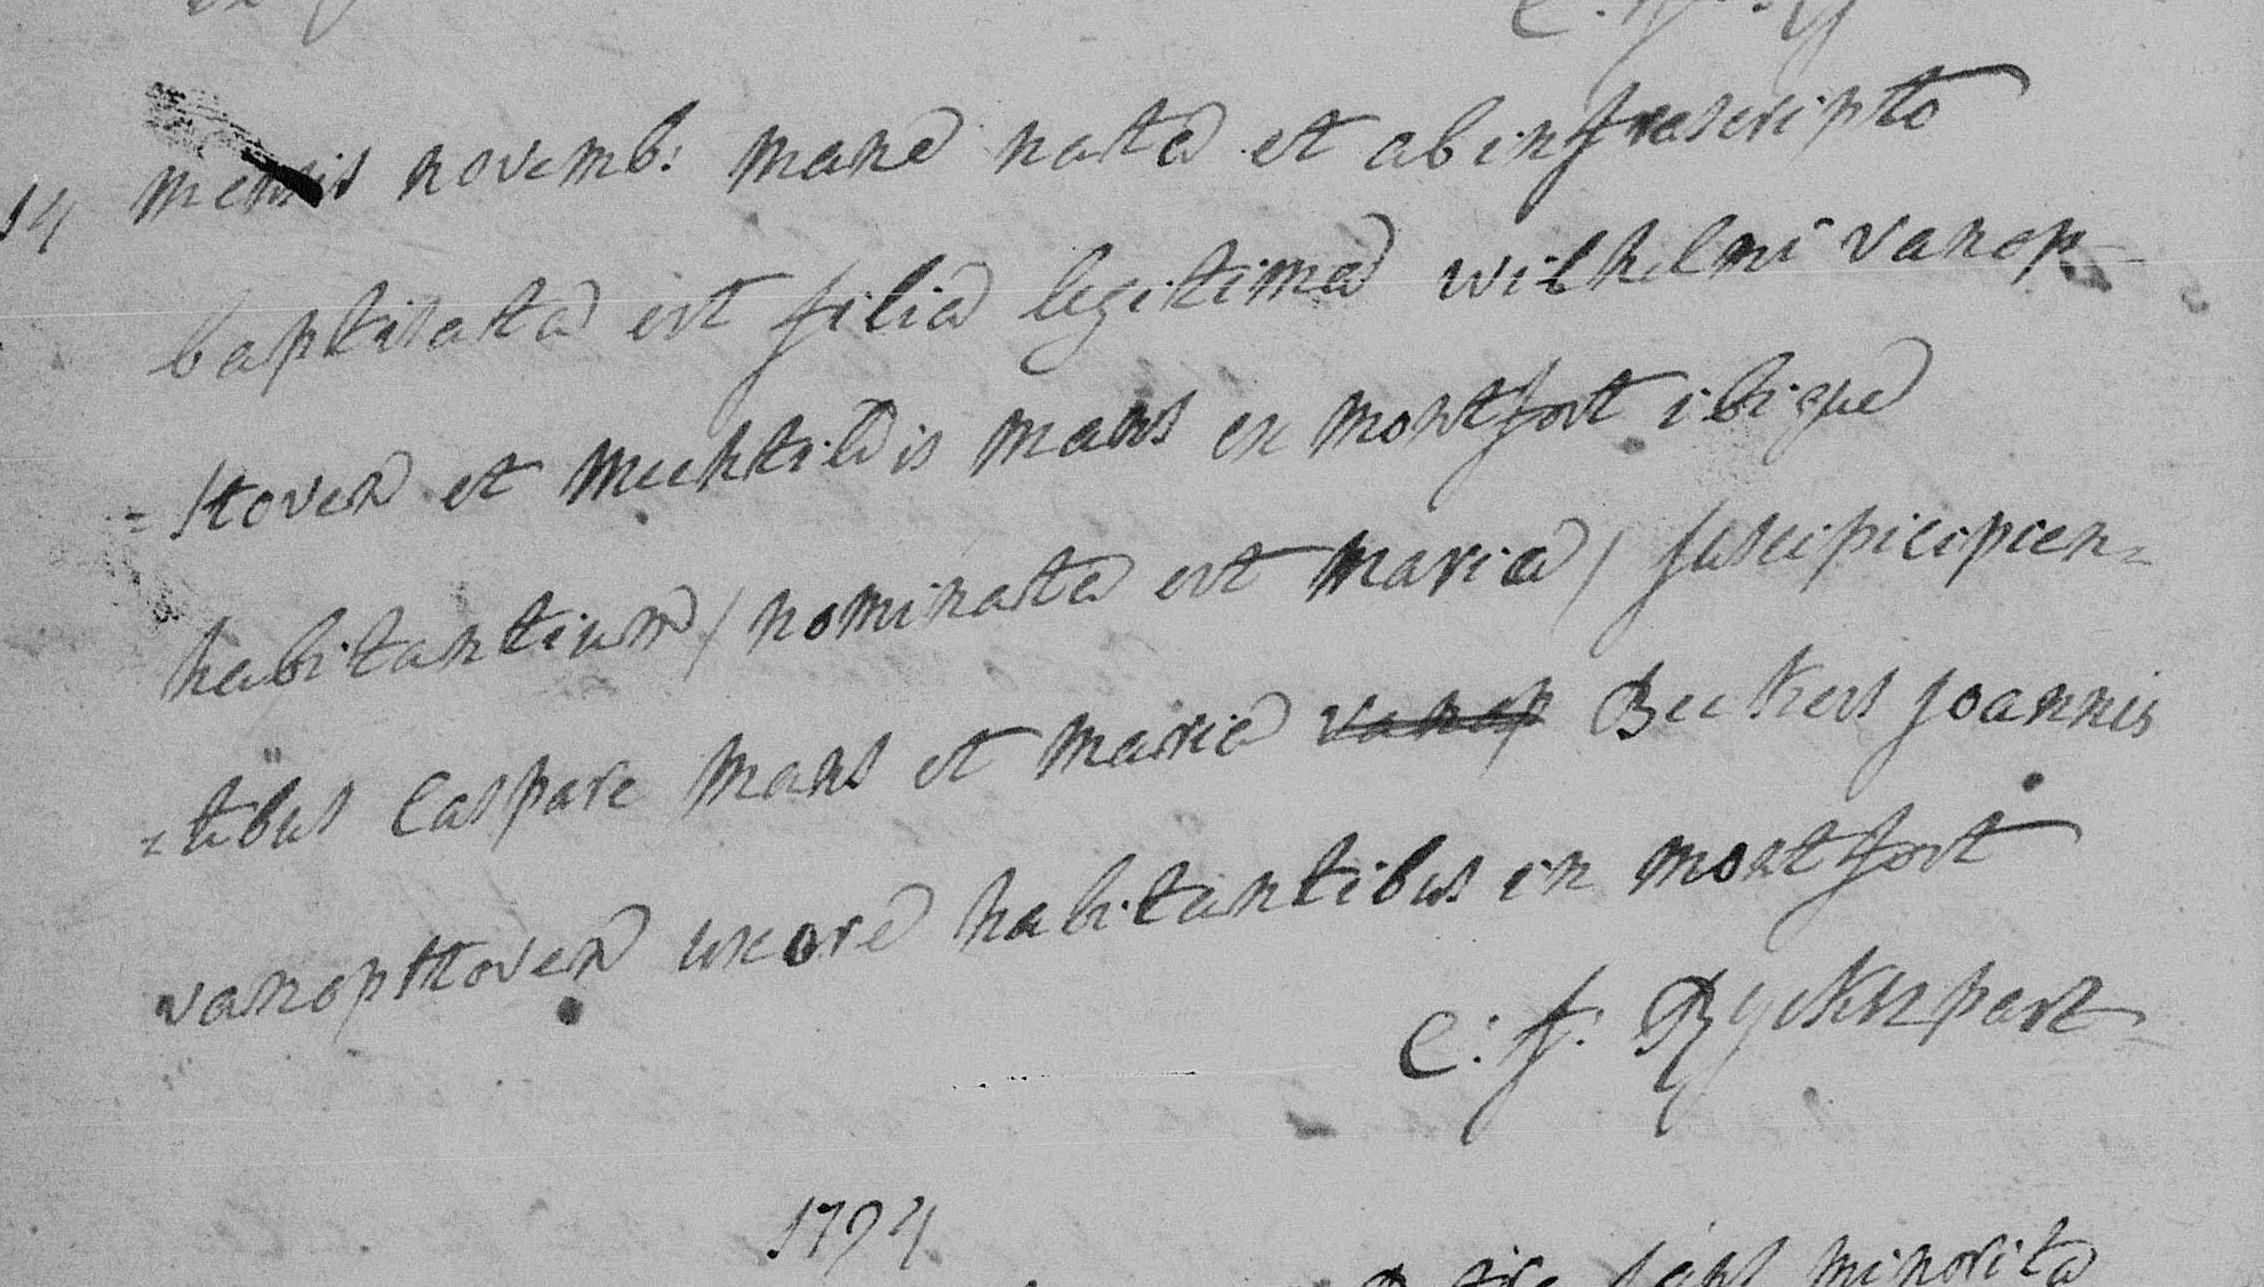 14 mensis novemb: mane nata et ab infrascripto
baptisata est filia legitima wilhelmi vanop-
=stoven et mechtildis mans ex montfort ibique
habitantium / nominata est maria / suscipicipien=
=tibus Caspare mans et marie vanop Beckers joannis
vanopstoven uxore habitantibus in montfort
C: f:
1794
minorita